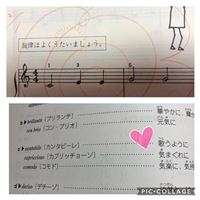 旋律はよくうたいましょう。
1 5 2 3
4
4
brillante [ブリランテ] 華やかに、
con brio [コン・ブリオ] 元気に
cantabile [カンタービレ] 歌うように
capriccioso [カプリッチョーソ] 気まぐれに
comodo [コモド] 気楽に、気
deciso [デチーゾ]
PIC•COLLAGE